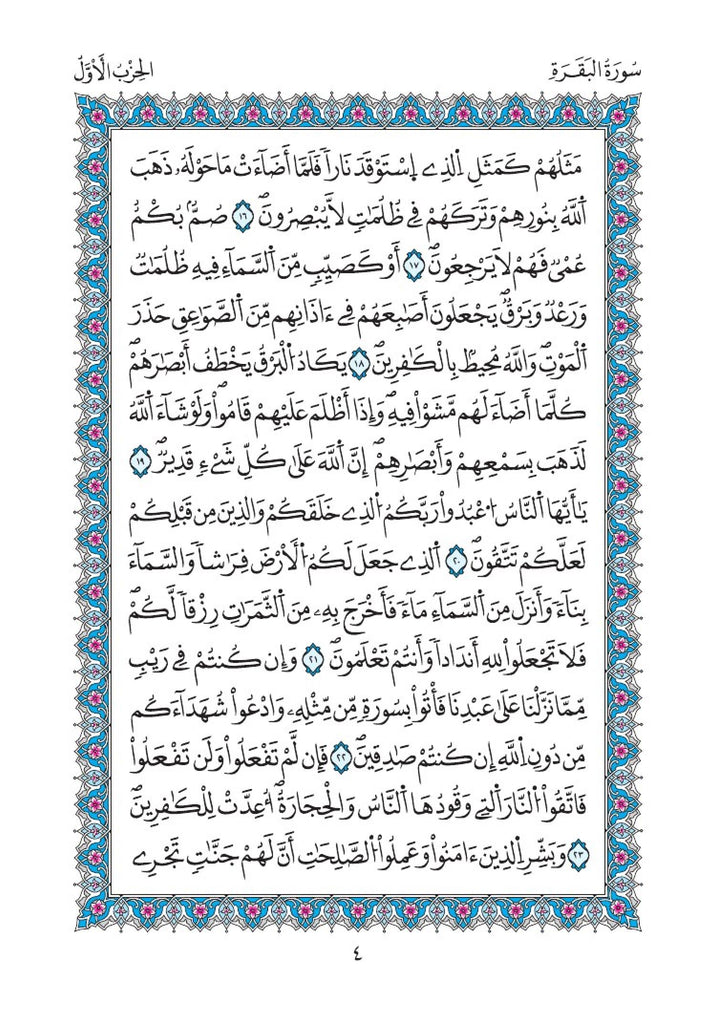 سُورَةُ الْبَقَرَةِ
الحِزْبُ الْأَوَّلُ
مَثَلُهُمْ كَمَثَلِ اِ۬لذِے اِ۪سْتَوْقَدَ نَاراٗ فَلَمَّا أَضَآءَتْ مَا حَوْلَهُۥ ذَهَبَ
اَ۬للَّهُ بِنُورِهِمْ وَتَرَكَهُمْ فِے ظُلُمَٰتٖ لَّا يُبْصِرُونَۖ ١٦ صُمُّۢ بُكْمٌ
عُمْيٞ فَهُمْ لَا يَرْجِعُونَۖ ١٧ أَوْ كَصَيِّبٖ مِّنَ اَ۬لسَّمَآءِ فِيهِ ظُلُمَٰتٞ
وَرَعْدٞ وَبَرْقٞ يَجْعَلُونَ أَصَٰبِعَهُمْ فِےٓ ءَاذَانِهِم مِّنَ اَ۬لصَّوَٰعِقِ حَذَرَ
اَ۬لْمَوْتِۖ وَاللَّهُ مُحِيطُۢ بِالْكَٰفِرِينَۖ ١٨ يَكَادُ اُ۬لْبَرْقُ يَخْطَفُ أَبْصَٰرَهُمْۖ
كُلَّمَآ أَضَآءَ لَهُم مَّشَوْاْ فِيهِۖ وَإِذَآ أَظْلَمَ عَلَيْهِمْ قَامُواْۖ وَلَوْ شَآءَ اَ۬للَّهُ
لَذَهَبَ بِسَمْعِهِمْ وَأَبْصَٰرِهِمْۖ إِنَّ اَ۬للَّهَ عَلَىٰ كُلِّ شَےْءٖ قَدِيرٞۖ ١٩
يَٰٓأَيُّهَا اَ۬لنَّاسُ اُ۟عْبُدُواْ رَبَّكُمُ اُ۬لذِے خَلَقَكُمْ وَالذِينَ مِن قَبْلِكُمْ
لَعَلَّكُمْ تَتَّقُونَۖ ٢٠ اَ۬لذِے جَعَلَ لَكُمُ اُ۬لْأَرْضَ فِرَٰشاٗ وَالسَّمَآءَ
بِنَآءٗ وَأَنزَلَ مِنَ اَ۬لسَّمَآءِ مَآءٗ فَأَخْرَجَ بِهِۦ مِنَ اَ۬لثَّمَرَٰتِ رِزْقاٗ لَّكُمْۖ
فَلَا تَجْعَلُواْ لِلهِ أَندَاداٗ وَأَنتُمْ تَعْلَمُونَۖ ٢١ وَإِن كُنتُمْ فِے رَيْبٖ
مِّمَّا نَزَّلْنَا عَلَىٰ عَبْدِنَا فَأْتُواْ بِسُورَةٖ مِّن مِّثْلِهِۦ وَادْعُواْ شُهَدَآءَكُم
مِّن دُونِ اِ۬للَّهِ إِن كُنتُمْ صَٰدِقِينَۖ ٢٢ فَإِن لَّمْ تَفْعَلُواْ وَلَن تَفْعَلُواْ
فَاتَّقُواْ اُ۬لنَّارَ اَ۬لتِے وَقُودُهَا اَ۬لنَّاسُ وَالْحِجَارَةُۖ أُعِدَّتْ لِلْكَٰفِرِينَۖ
٢٣ وَبَشِّرِ اِ۬لذِينَ ءَامَنُواْ وَعَمِلُواْ اُ۬لصَّٰلِحَٰتِ أَنَّ لَهُمْ جَنَّٰتٖ تَجْرِے
٤